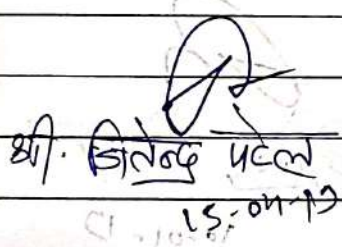 श्री. जितेन्द्र पटेल
15-04-17